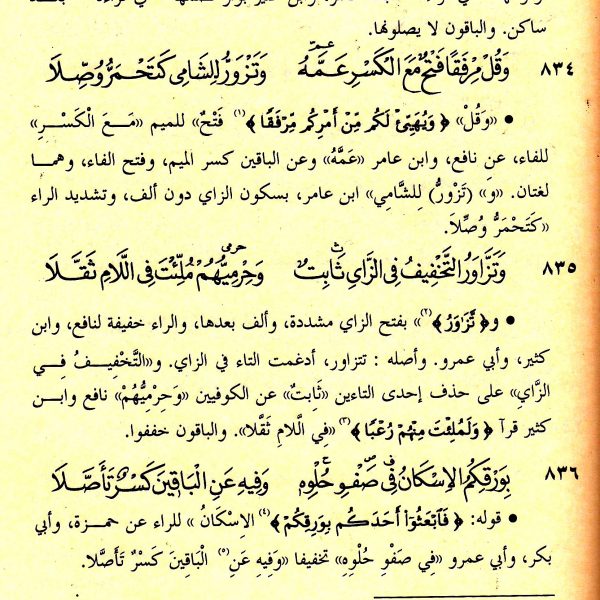 ساكن. والباقون لا يصلونها.
٨٣٤ وَقُلْ مِرْفَقًا فَتْحٌ مَعَ الْكَسْرِ عَمَّهُ وَتَزْوَرُّ لِلشَّامِي كَتَحْمَرُّ وُصِّلَا
● «وَقُلْ» ﴿ وَيُهَيِّئْ لَكُم مِّنْ أَمْرِكُم مِّرْفَقًا ﴾(١) فَتْحٌ» للميم «مَـعَ الْكَسْـرِ»
للفاء، عن نافع، وابن عامر «عَمَّهُ» وعن الباقين كسر الميم، وفتح الفاء، وهمـا
لغتان. «وَ» (تَزْوَرُّ) لِلشَّامِي» ابن عامر، بسكون الزاي دون ألف، وتشديد الراء
«كَتَحْمَرُّ وُصِّلَا.
٨٣٥ وَتَزَّاوَرُ التَّخْفِيفُ فِي الزَّايِ ثَابِتٌ وَحِرْمِيُّهُمْ مُلِّئْتَ فِي اللَّامِ ثَقَّلَا
● و﴿ تَّزَاوَرُ ﴾(٢)» بفتح الزاي مشددة، وألف بعدها، والراء خفيفة لنافع، وابن
كثير، وأبي عمرو. وأصله : تتزاور، أدغمت التاء في الزاي. و«التَّخْفِيـفُ فِـي
الزَّايِ» على حذف إحدى التاءين «ثَابِتٌ» عن الكوفيين «وَحِرْمِيُّهُمْ» نافع وابـن
كثير قرآ ﴿ وَلَمُلِّئْتَ مِنْهُمْ رُعْبًا ﴾(٣) «فِي اللَّامِ ثَقَّلَا». والباقون خففوا.
٨٣٦ بِوَرْقِكُمُ الإِسْكَانُ فِي صَفْوِ حُلْوِهِ وَفِيهِ عَنِ الْبَاقِينَ كَسْرٌ تَأَصَّلَا
● قوله: ﴿ فَابْعَثُوا أَحَدَكُم بِوَرِقِكُمْ ﴾(٤) الإِسْكَانُ » للراء عن حمـزة، وأبي
بكر، وأبي عمرو «فِي صَفْوِ حُلْوِهِ» تخفيفا «وَفِيهِ عَنِ(٥) الْبَاقِينَ كَسْرٌ تَأَصَّلَا.